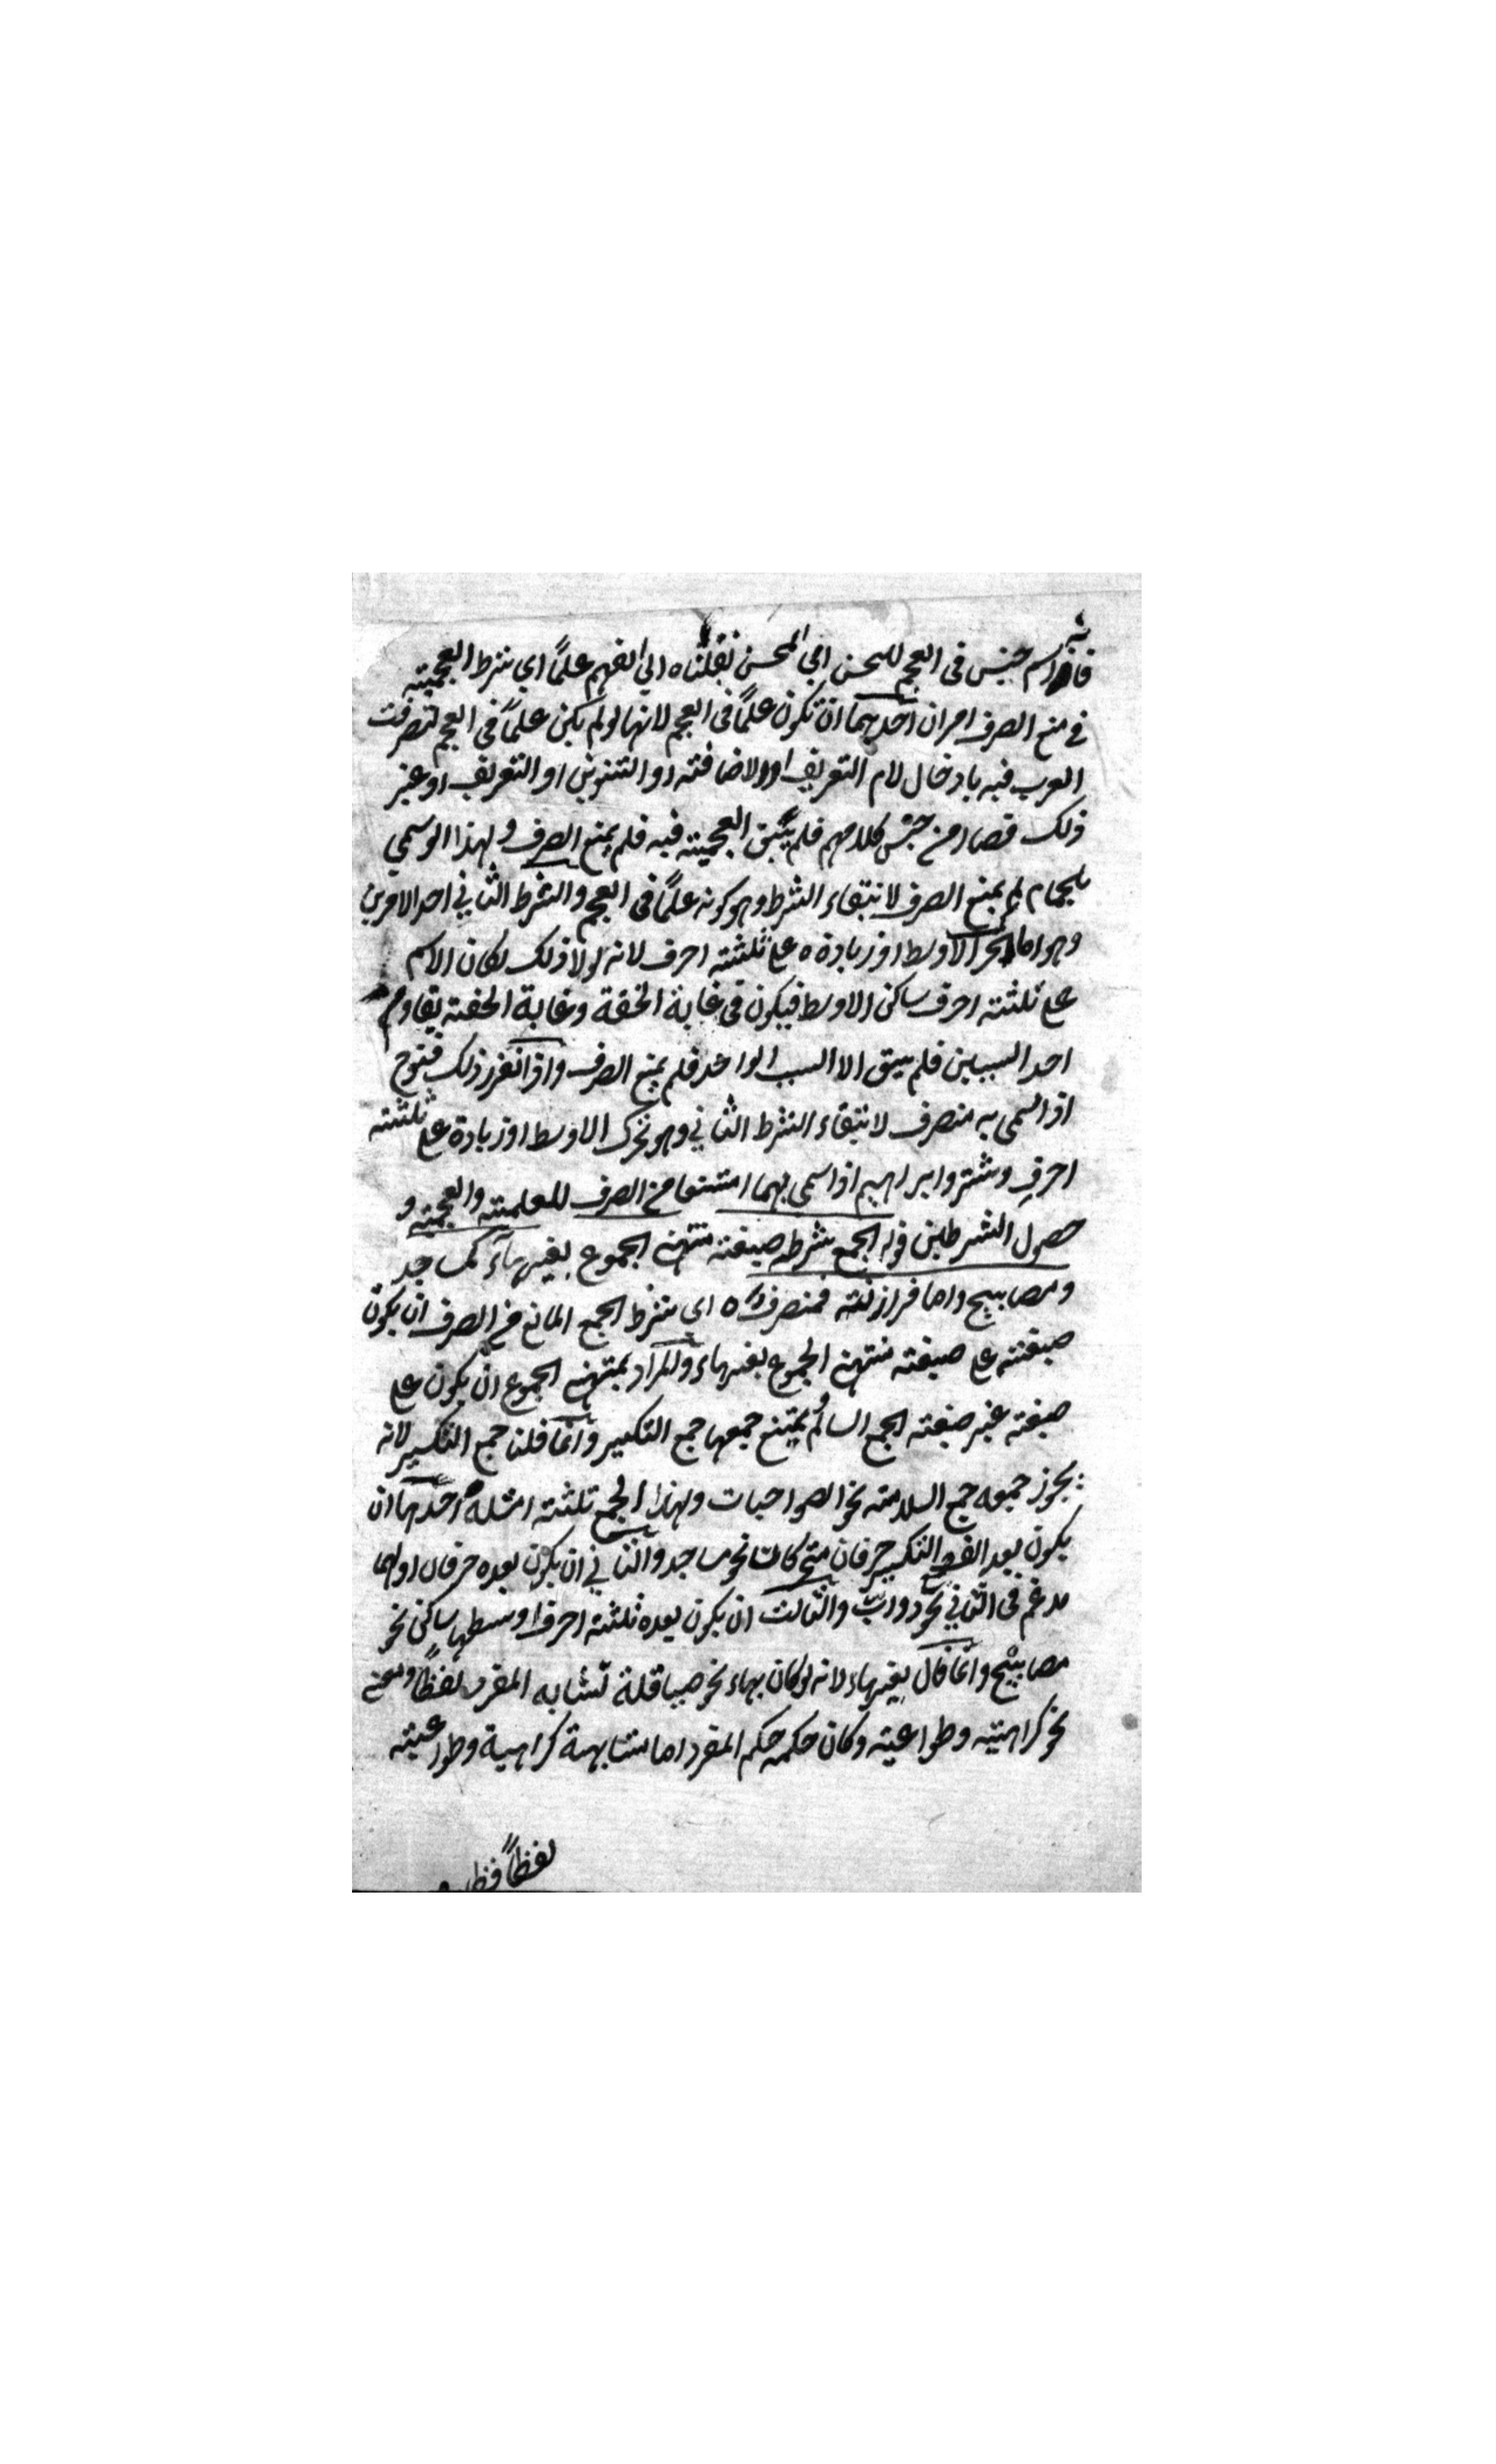 فانه اسم جنس فى العجم للحسن اي المحسن نقلناه الى الفهم علمًا اي شرط العجمية
في منع الصرف امران احدهما ان تكون علمًا فى العجم لانها لو لم يكن علمًا فى العجم لتصرفت
العرب فيه بادخال لام التعريف او الاضافته او التنوين او التعريف او غير
ذلك فصار من جنس كلامهم فلم يبق العجمية فيه فلم يمنع الصرف ولهذا لو سمي
بلجام لم يمنع الصرف لانتفاء الشرط وهو كونه علمًا فى العجم والشرط الثاني احد الامرين
وهو اما تحرك الاوسط او زيادة ه على ثلثته احرف لانه لولا ذلك لكان الاسم
على ثلثته احرف ساكن الاوسط فيكون فى غاية الخفة وغاية الخفته يقاوم
احد السببين فلم يبق الا السبب الواحد فلم يمنع الصرف واذا تقرر ذلك فنوح
اذا سمى به منصرف لانتفاء الشرط الثاني وهو تحرك الاوسط او زيادة على ثلثته
احرفِ وشتر وابراهيم اذا سمى بهما امتنعا من الصرف للعلمية والعجمية و
حصول الشرطين قوله الجمع شرطه صيغته منتهى الجموع بغير هاء كمساجد
ومصابيح واما فرازنته فمنصرف ه اى شرط الجمع المانع من الصرف ان يكون
صيغته على صيغته منتهى الجموع بغير هاء والمراد بمنتهى الجموع ان يكون على
صيغته غير صيغته الجمع السالم يمتنع جمعها جمع التكسير وانما قلنا جمع التكسير لانه
يجوز جمعه جمع السلامته نحو الصواحبات ولهذا الجمع ثلثته امثله احدها ان
يكون بعد الف التكسير حرفان متحركان نحو مساجد والثاني ان يكون بعده حرفان اولهما
مدغم فى الثاني نحو دوابّ والثالث ان يكون بعده ثلثته احرف اوسطها ساكن نحو
مصابيح وانما قال بغير هاء لانه لو كان بهاء نحو صياقلة تشابه المفرد لفظًا ومعنى
نحو كراهيته وطواعيته وكان حكمه حكم المفرد اما مشابهة كراهية وطواعيته
لفظًا